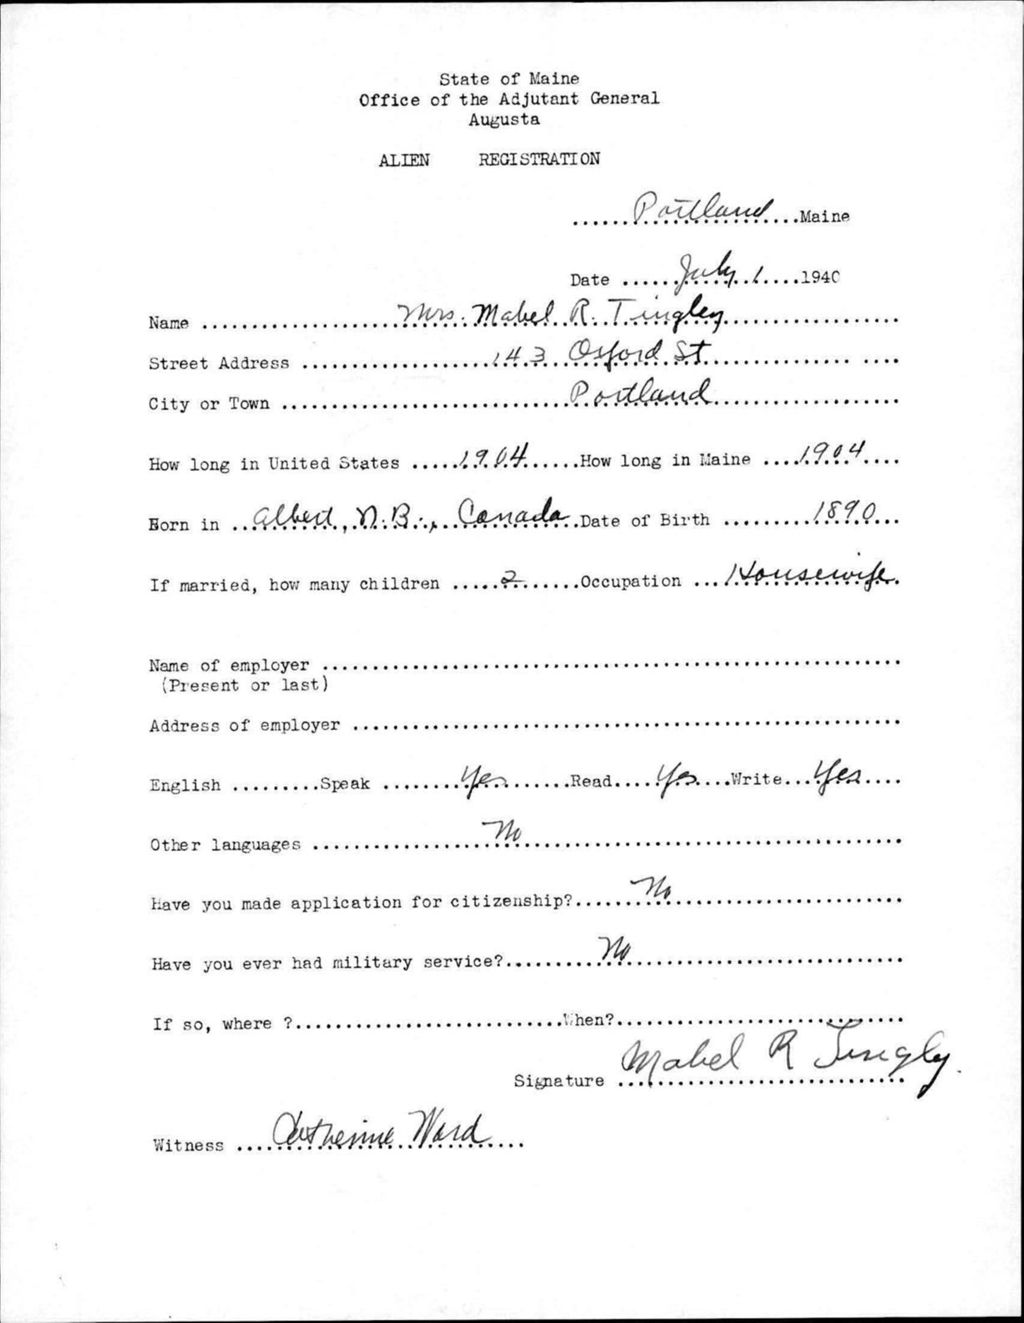 State of Maine
Office of the Adjutant General
Augusta
ALIEN REGISTRATION
......Portland...Maine
Date ......July 1....1940
Name ....................Mrs. Mabel R. Tingley..................
Street Address ...................143 Oxford St...................
City or Town ............................Portland...................
How long in United States .....1904......How long in Maine ....1904....
Born in ..Albert, N.B., Canada..Date of Birth .........1890...
If married, how many children .....2.......Occupation ...Housewife.
Name of employer ..........................................................
(Present or last)
Address of employer .......................................................
English .........Speak ........Yes.......Read....Yes....Write...Yes....
Other languages ..................No......................................
Have you made application for citizenship?.......No.......................
Have you ever had military service?..........No...........................
If so, where ?...........................When?.............................
Signature ...Mabel R Tingly.
Witness ....Catherine Ward....